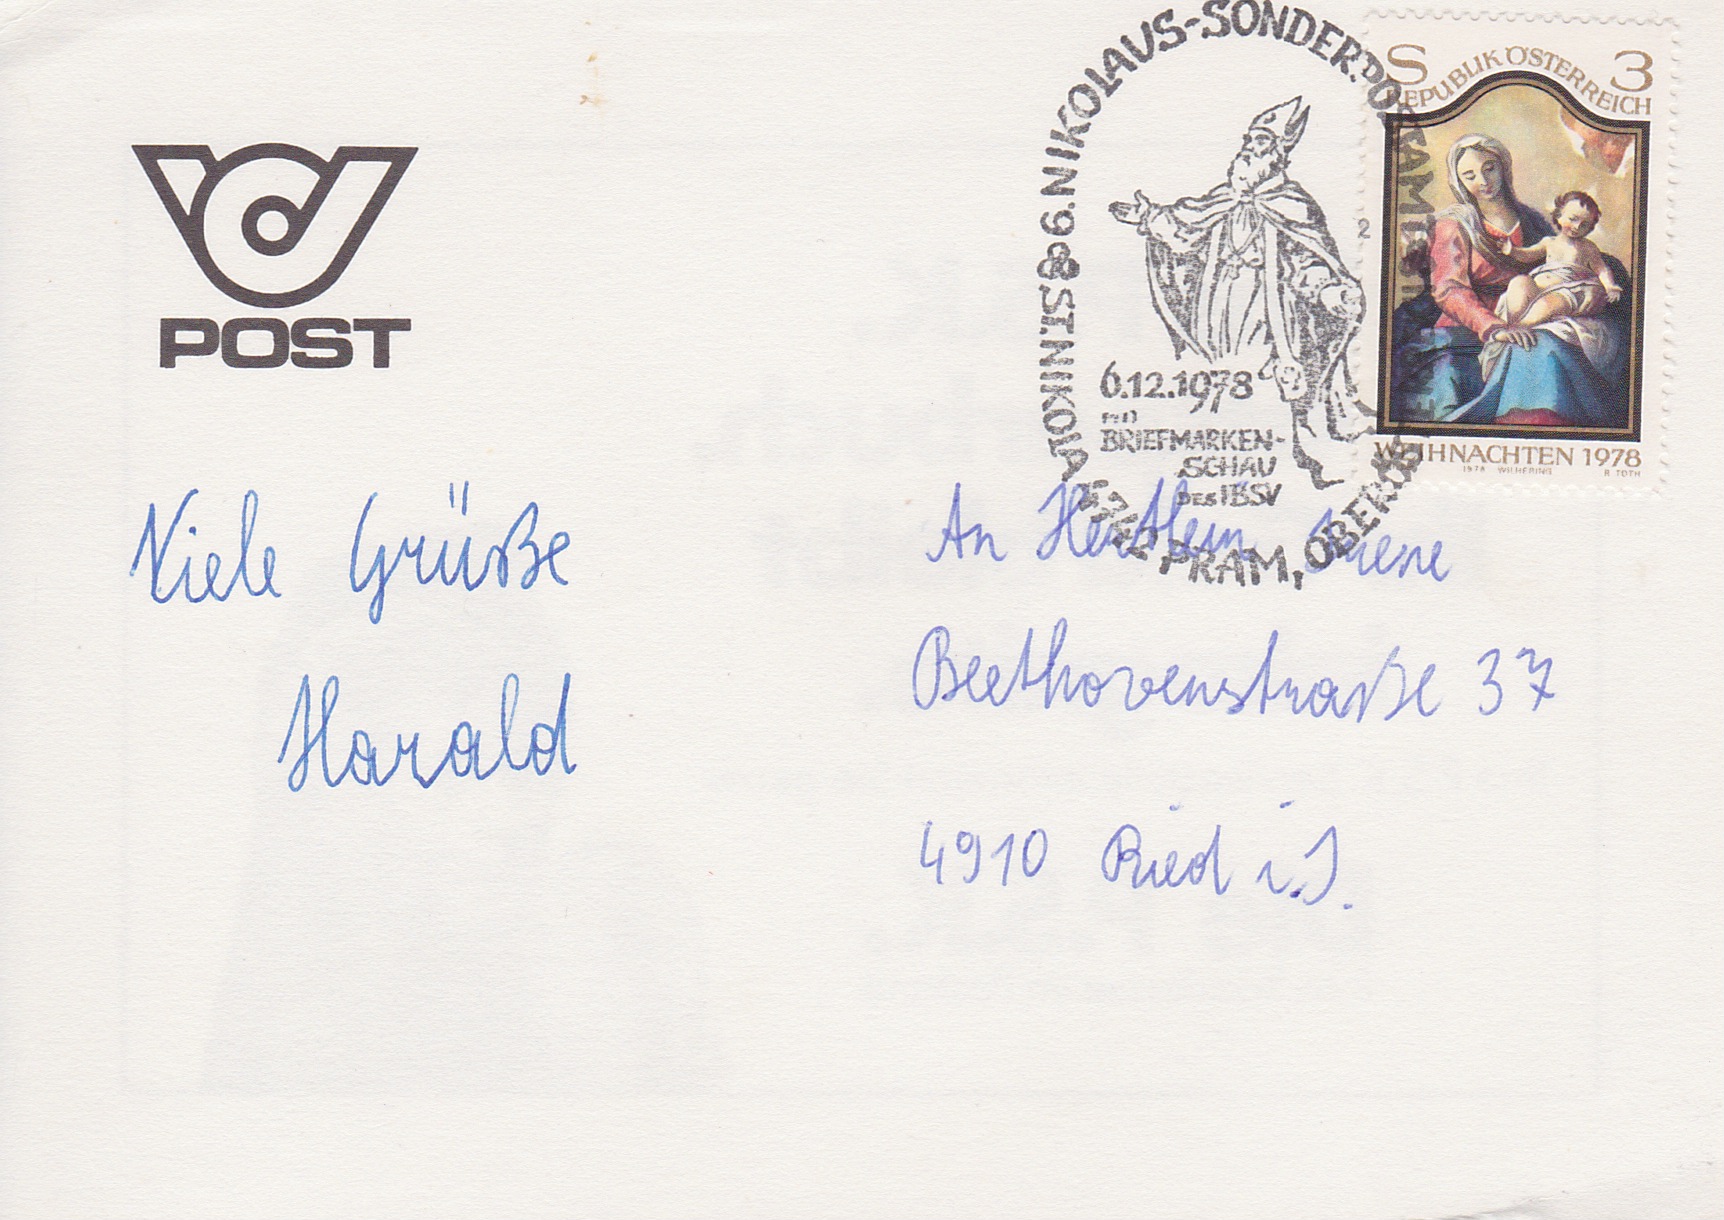 POST
9. NIKOLAUS-SONDERPOSTAMT
ST. NIKOLA
PRAM, OBERÖ
6.12.1978
BRIEFMARKEN-
SCHAU
DES IBSV
S 3
REPUBLIK ÖSTERREICH
WEIHNACHTEN 1978
1978 WILHERING R. TOTH
Viele Grüße
Harald
An
Beethovenstraße 37
4910 Ried i.J.